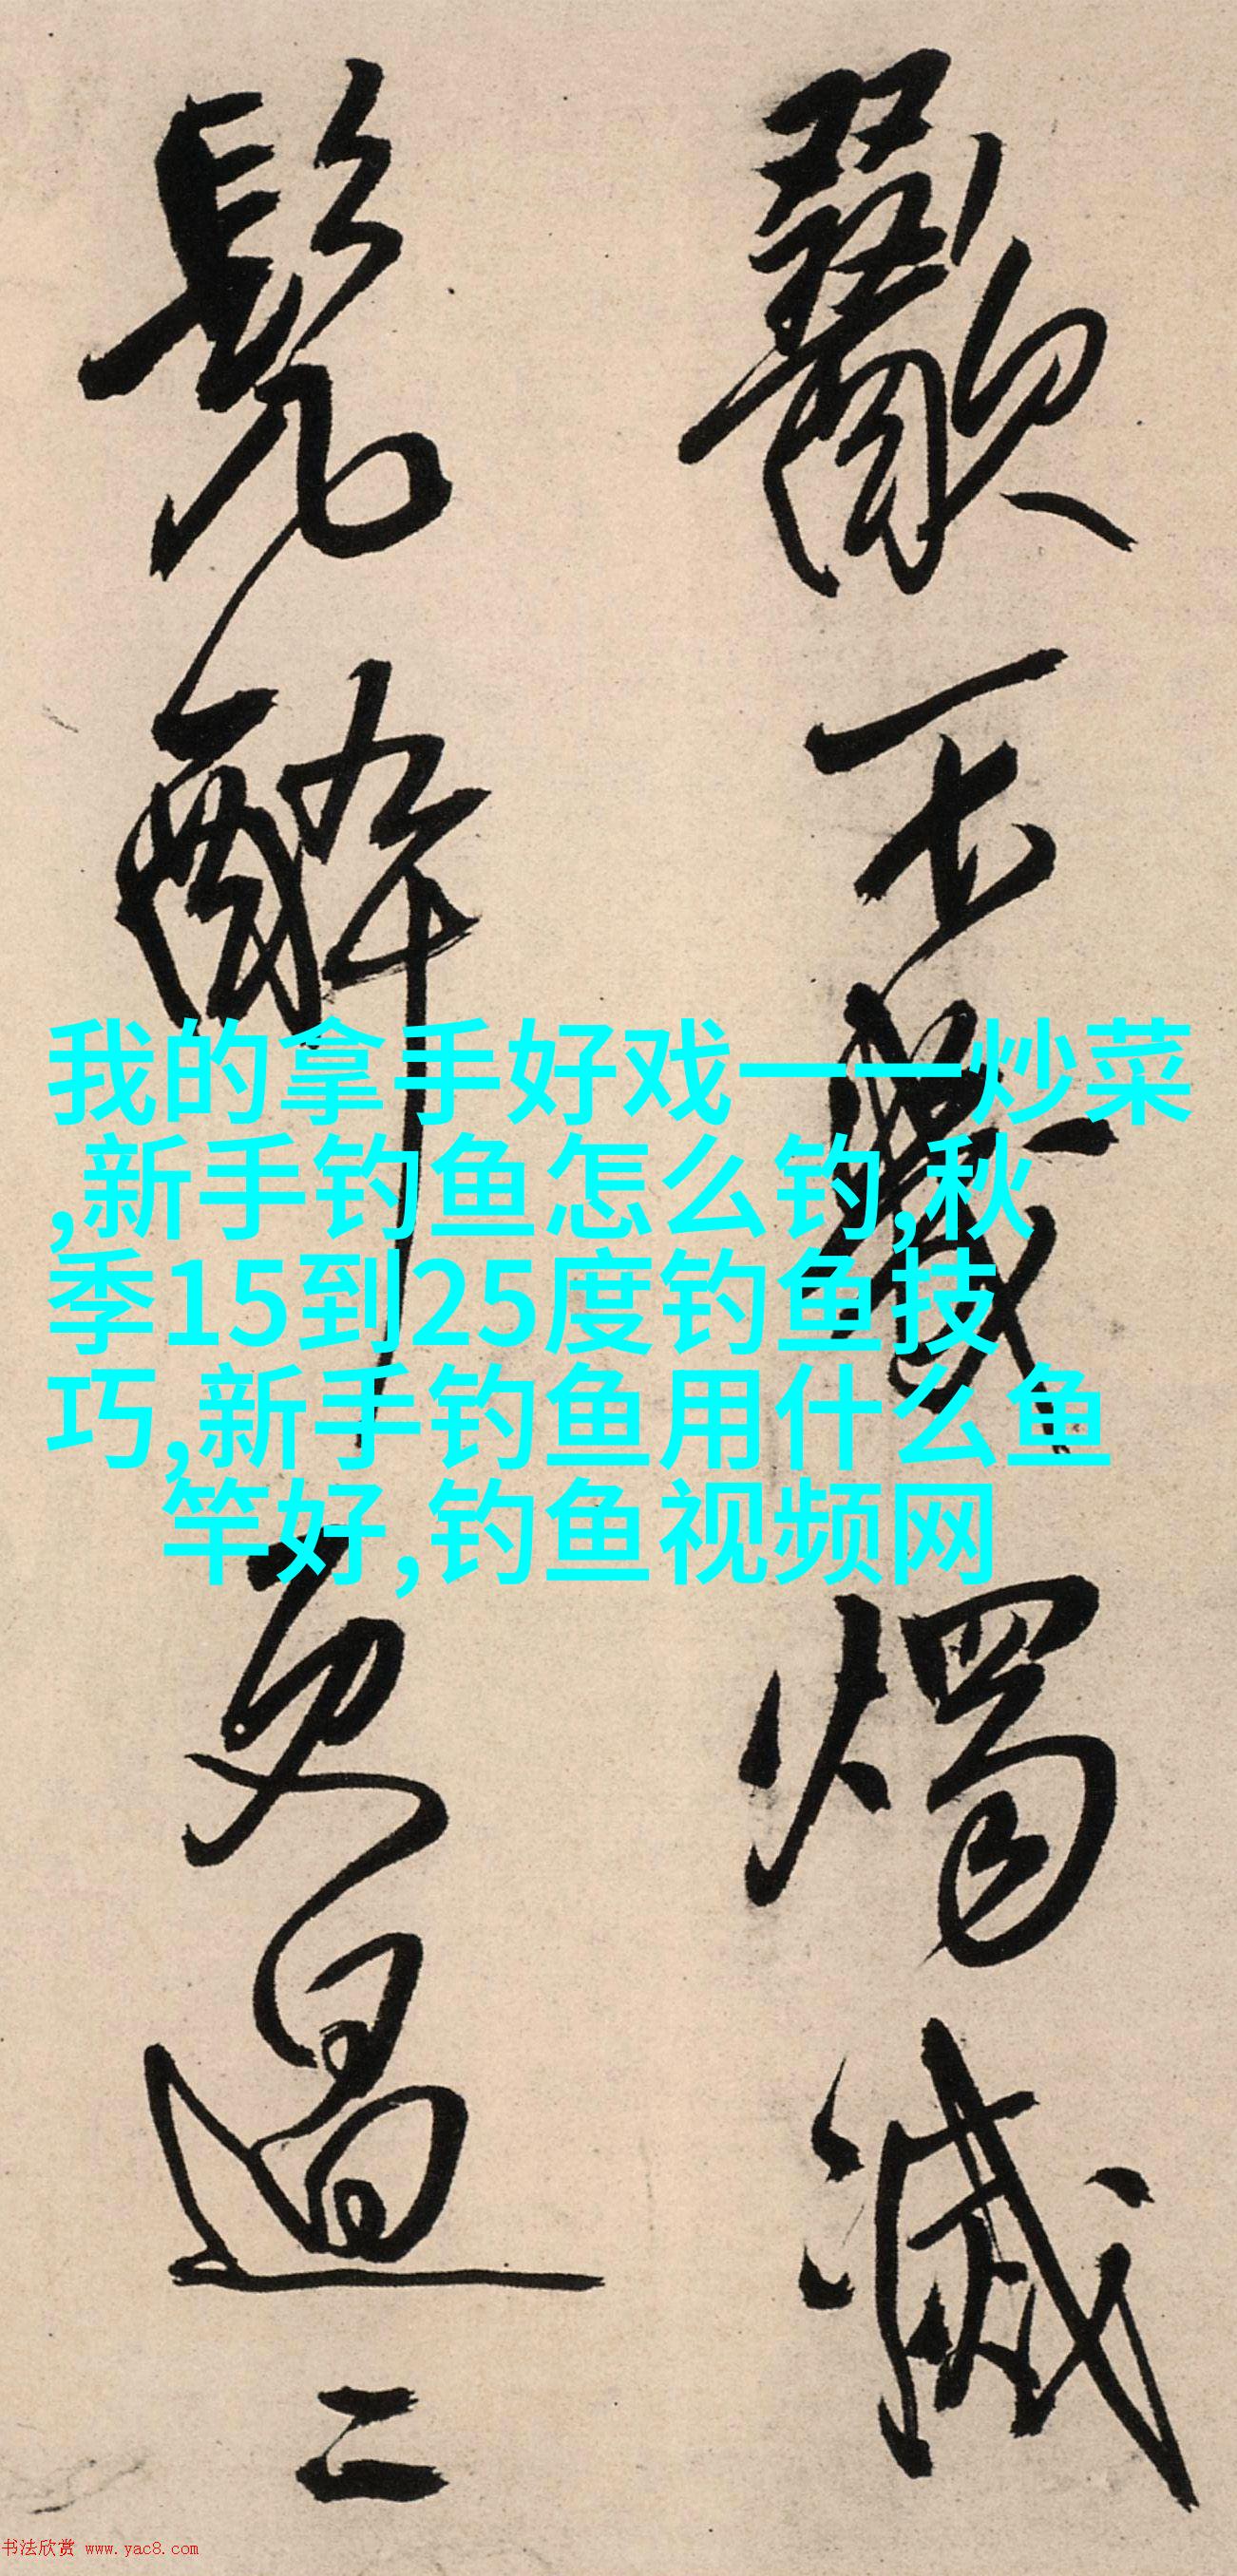 燭滅
髡醉更過二
我的拿手好戏——炒菜
,新手钓鱼怎么钓,秋
季15到25度钓鱼技
巧,新手钓鱼用什么鱼
竿好,钓鱼视频网
书法欣赏 www.yac8.com